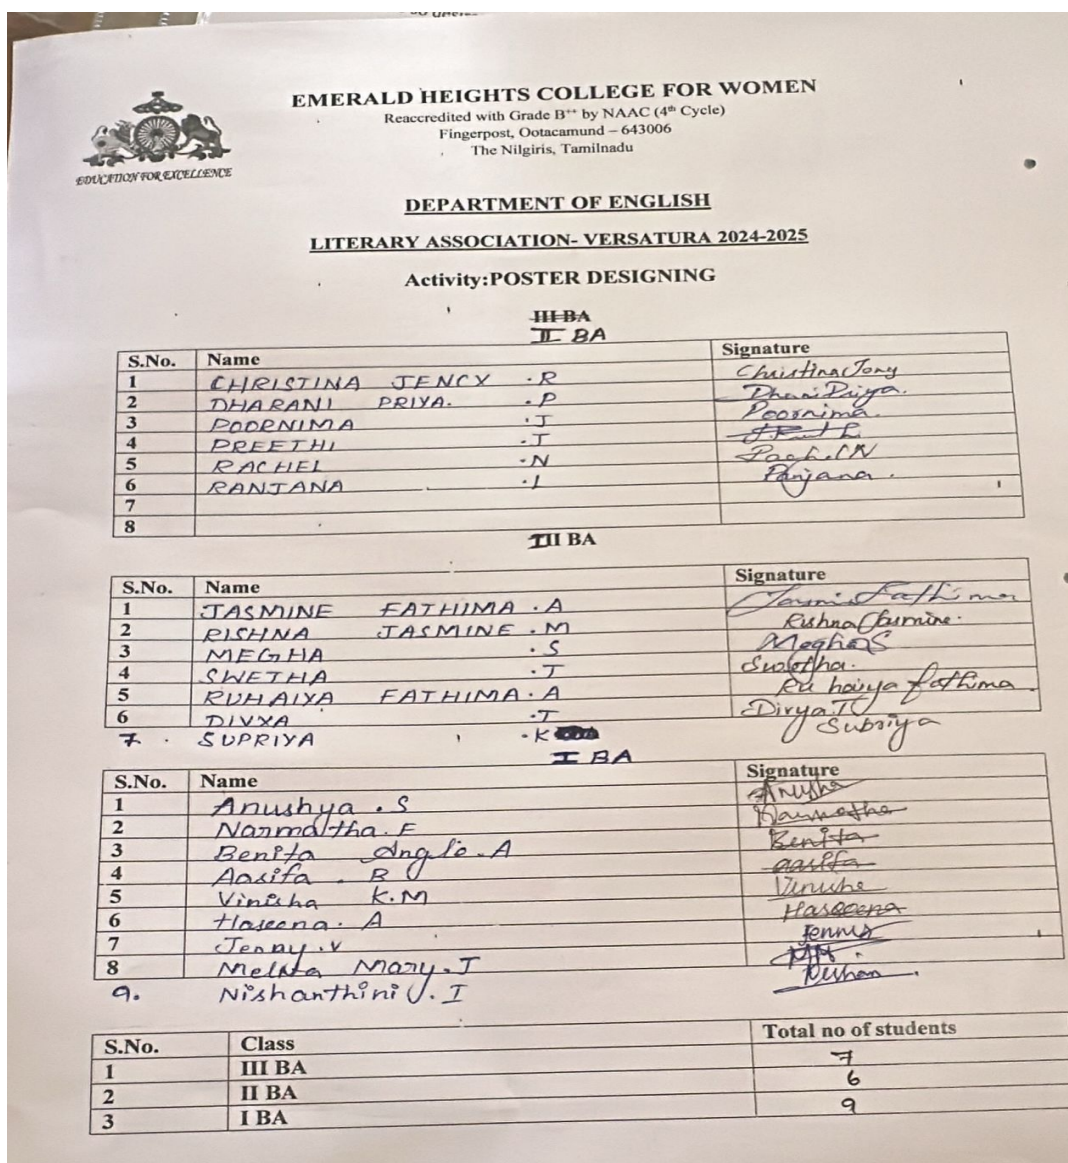 EMERALD HEIGHTS COLLEGE FOR WOMEN
Reaccredited with Grade B++ by NAAC (4th Cycle)
Fingerpost, Ootacamund – 643006
The Nilgiris, Tamilnadu
EDUCATION FOR EXCELLENCE
DEPARTMENT OF ENGLISH
LITERARY ASSOCIATION- VERSATURA 2024-2025
Activity:POSTER DESIGNING
III BA
II BA
S.No. Name Signature
1 CHRISTINA JENCY .R Christina Jency
2 DHARANI PRIYA. .P
3 POORNIMA .J Poornima.
4 PREETHI .J
5 RACHEL .N Rachel N
6 RANJANA .I Ranjana.
7
8
III BA
S.No. Name Signature
1 JASMINE FATHIMA .A Fathima
2 RISHNA JASMINE .M Rishna Jasmine.
3 MEGHA .S Megha S
4 SWETHA .T Swetha.
5 RUHAIYA FATHIMA .A Ruhaiya fathima
6 DIVYA .T Divya T
7. SUPRIYA .K Subriya
I BA
S.No. Name Signature
1 Anushya . S Anushya
2 Narmaltha. E
3 Benita Anglo. A Benita
4 Aasifa . B aasifa
5 Vinisha K.M
6 Haseena. A Haseena
7 Jenny. V
8 Mary. J
9. Nishanthini J. I
S.No. Class Total no of students
1 III BA 7
2 II BA 6
3 I BA 9